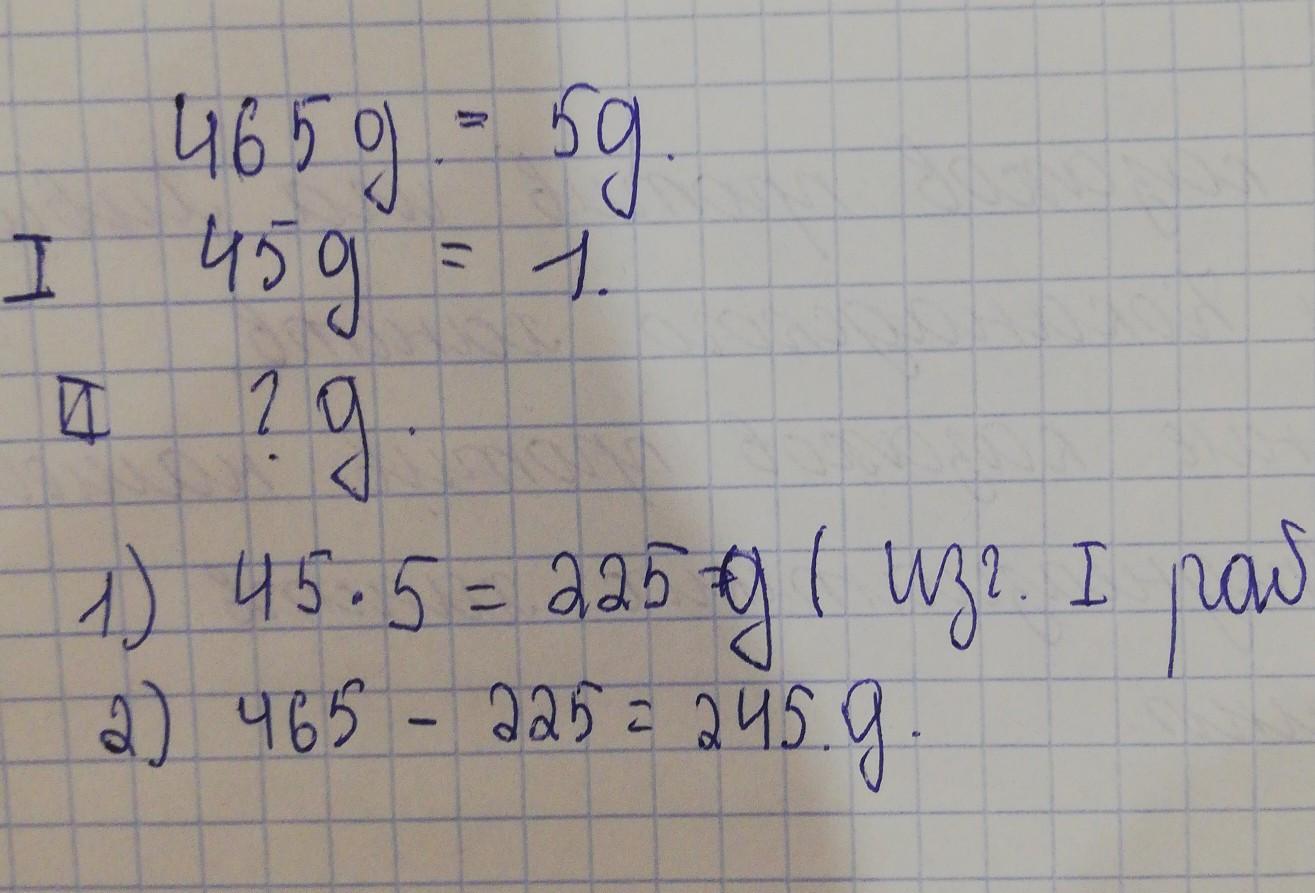 465 д. = 5 д.
I 45 д = 1.
II ? д.
1) 45 · 5 = 225 д ( изг. I раб
2) 465 - 225 = 245. д.